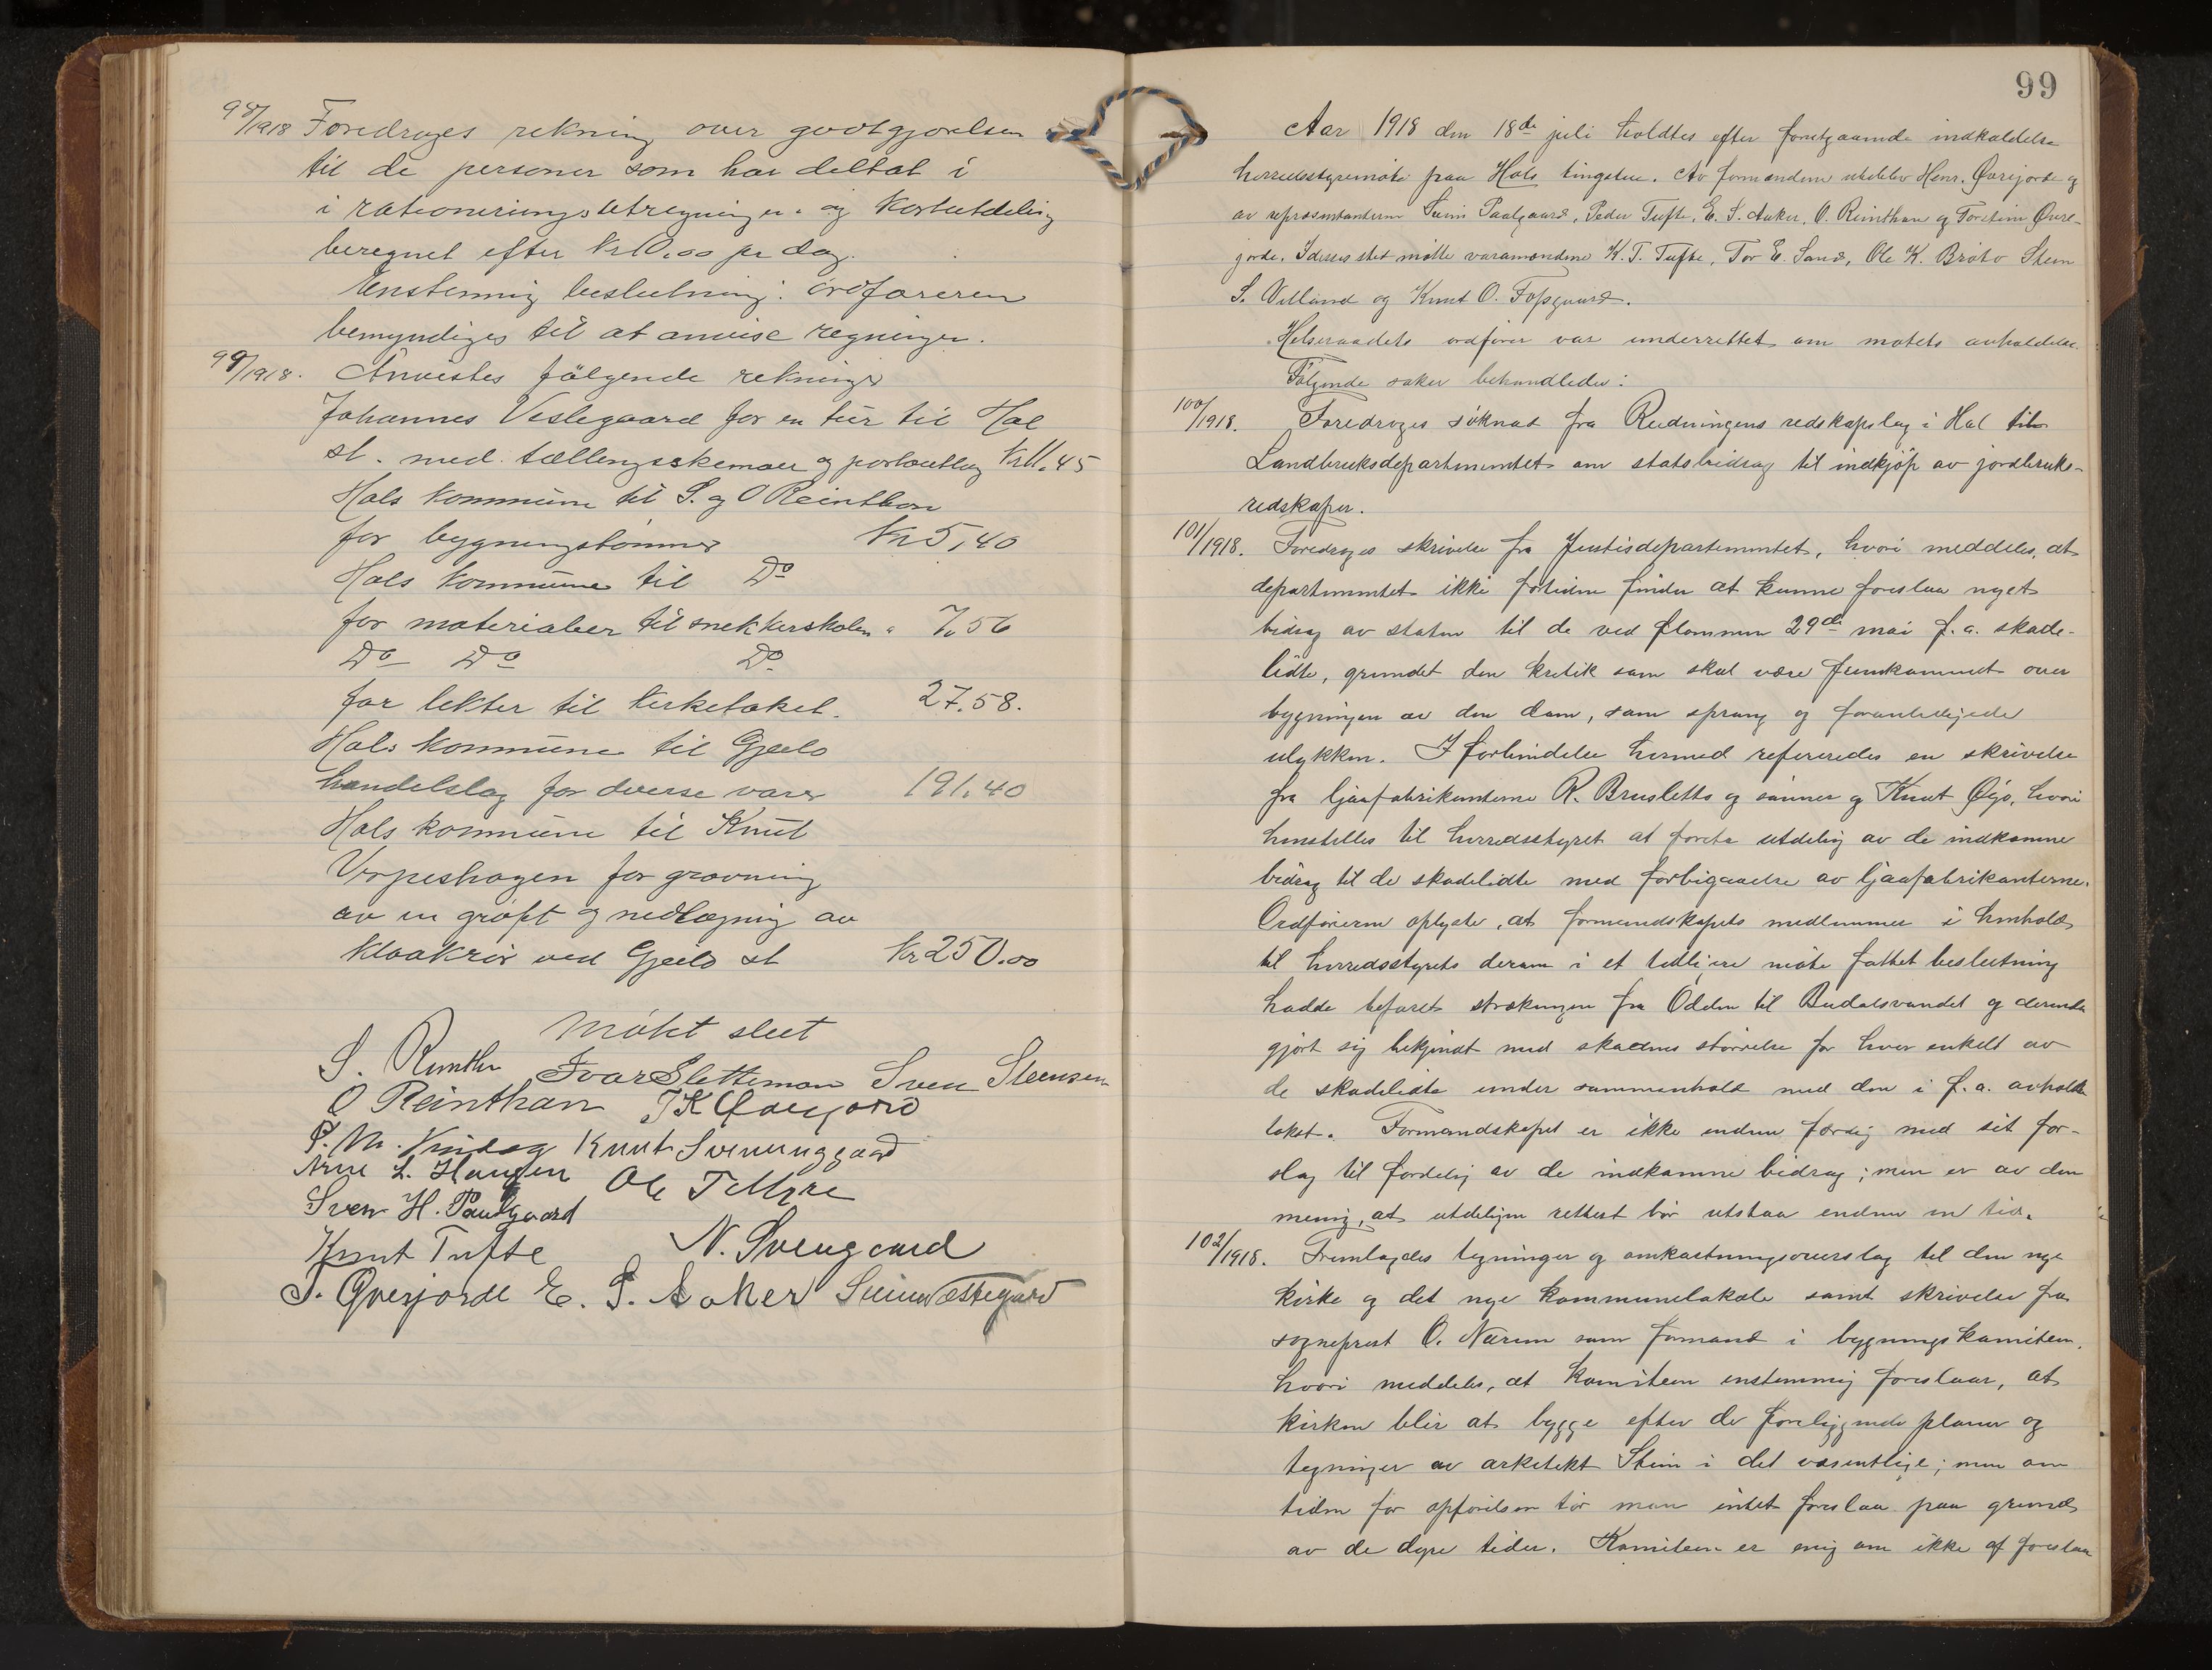 98/1918 Foredroges rekning over godtgjørelsen
til de personer som har deltat i
i rationeringsutregninger og kortutdeling
beregnet efter Kr 10.00 pr dag.
Enstemmig beslutning: Ordføreren
bemyndiges til at anvise regningen.
99/1918. Anvistes følgende rekninger
Johannes Veslegaard for en tur til Hol
st. med tællingsskemaer og portoutlæg Kr 11.45
Hols kommune til S. og O Reinthon
for bygningstømmer Kr 5,40
Hols kommune til Do
for materialier til snekkerskolen " 7.56
Do Do Do
for lekter til kirketaket. 27.58.
Hols kommune til Gjeilo
handelslag for diverse varer 191.40
Hols kommune til Knut
Verpeshagen for gravning
av en grøft og nedlægning av
kloakrør ved Gjeilo st Kr 250.00
Møtet slut
S. Reinthon Ivar Slettemoen Sven Steensen
O Reinthon T K Øvrejorde
Knut Sveinunggaard
Arne L. Haugen Ole T Myre
Sven H. Paulgaard
Knut Tufte N. Sveingaard
T. Øvrejorde E. S. Aaker Svein Vestegaard
99
Aar 1918 den 18de juli holdtes efter forutgaaende indkaldelse
herredsstyremøte paa Hols tingstue. Av formændene uteblev Henr. Øvrejorde og
av repræsentanterne Svein Paalgaard, Peder Tufte, E. S. Aaker, O. Reinthon og Torstein Øvre-
jorde. I deres sted møtte varamændene K. T. Tufte, Tor E. Sand, Ole K. Bråto Stein
S. Villand og Knut O. Fossgaard.
Helseraadets ordfører var underrettet om møtets avholdelse.
Følgende saker behandledes:
100/1918. Foredroges søknad fra Rudningens redskapslag i Hol til
Landbruksdepartementet om statsbidrag til indkjøp av jordbruks-
redskaper.
101/1918. Foredroges skrivelse fra Justisdepartementet, hvori meddeles, at
departementet ikke fortiden finder at kunne foreslaa noget
bidrag av staten til de ved flommen 29de mai f. a. skade-
lidte, grundet den kritik som skal være fremkommet over
bygningen av den dam, som sprang og foranledigede
ulykken. I forbindelse hermed refereredes en skrivelse
fra ljaafabrikanterne R. Brusletto og sønner og Knut Øijo, hvori
henstilles til herredsstyret at foreta utdeling av de indkomne
bidrag til de skadelidte med forbigaaelse av ljaafabrikanterne.
Ordføreren oplyste, at formandskapets medlemmer i henhold
til herredsstyrets derom i et tidligere møte fattet beslutning
hadde befaret strækningen fra Ødden til Budalsvandet og derunder
gjort sig bekjendt med skadens størrelse for hver enkelt av
de skadelidte under sammenhold med den i f. a. avholdte
takst. Formandskapet er ikke endnu færdig med sit for-
slag til fordeling av de indkomne bidrag; men er av den
mening, at utdelingen rettest bør utstaa endnu en tid.
102/1918. Fremlagdes tegninger og omkostningsoverslag til den nye
kirke og det nye kommunelokale samt skrivelse fra
sogneprest O. Næren som formand i bygningskomiteen,
hvori meddeles, at komiteen enstemmig foreslaar, at
kirken blir at bygge efter de foreliggende planer og
tegninger av arkitekt Stein i det væsentlige; men om
tiden for opførelsen tør man intet foreslaa paa grund
av de dyre tider. Komiteen er enig om ikke at foreslaa